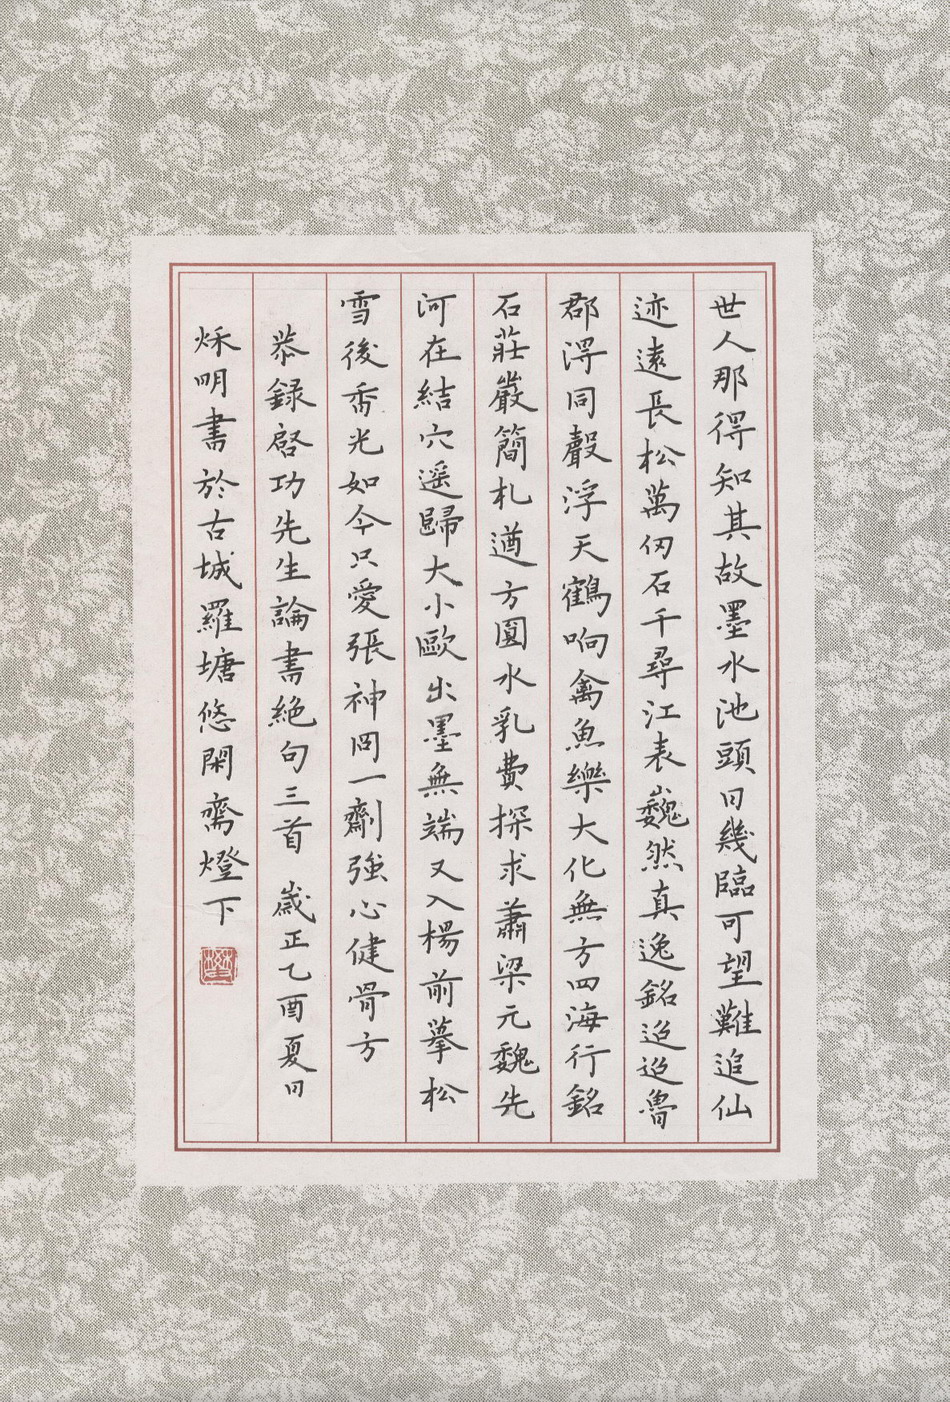 世人那得知其故墨水池頭日幾臨可望難追仙
迹遠長松萬仞石千尋江表巍然真逸銘迢迢魯
郡淂同聲浮天鶴响禽魚樂大化無方四海行銘
石莊嚴簡札遒方圓水乳費探求蕭梁元魏先
河在結穴遥歸大小歐出墨無端又入楊前摹松
雪後香光如今只愛張神冏一劑強心健骨方
恭録啓功先生論書絶句三首 歲正乙酉夏日
秌明書於古城羅塘悠閑齋燈下